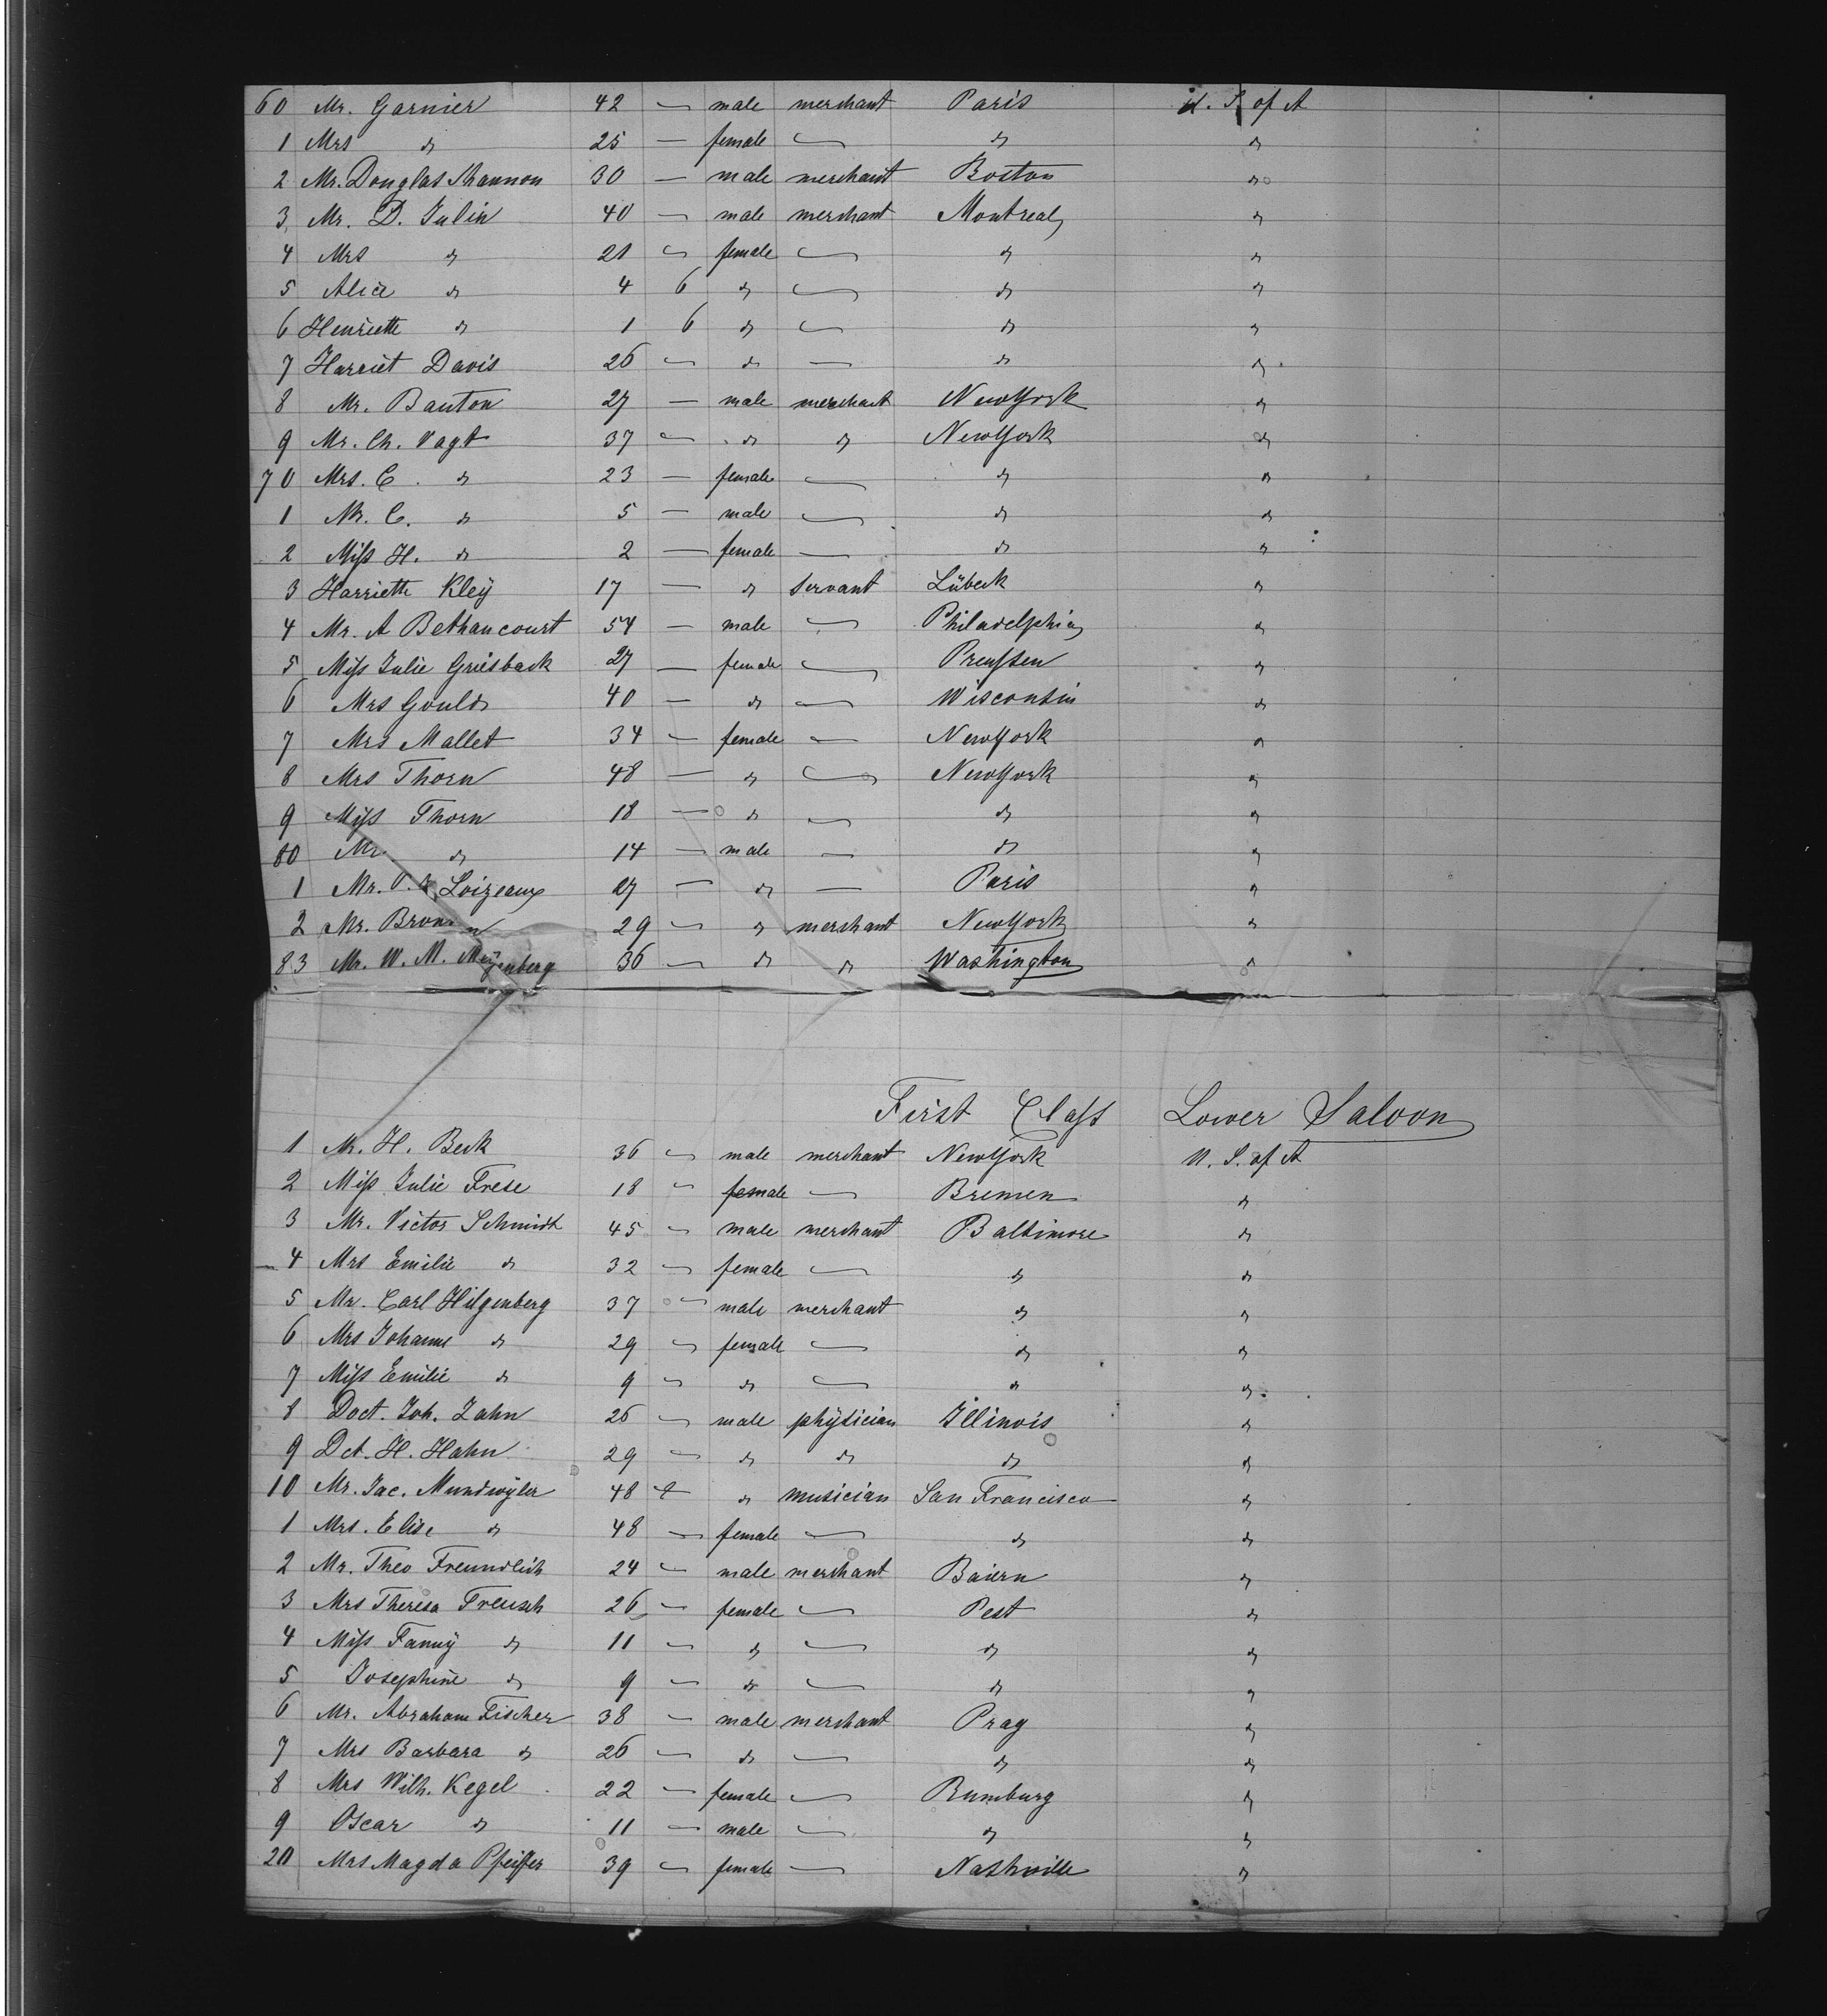 60 Mr. Garnier 42 — male merchant Paris U. S. of A
1 Mrs " 25 — female — " "
2 Mr. Douglas Shannon 30 — male merchant Boston "
3 Mr. D. Julin 40 — male merchant Montreal "
4 Mrs " 21 — female — " "
5 Alice " 4 6 " — " "
6 Henriette " 1 6 " — " "
7 Harriet Davis 26 — " — " "
8 Mr. Banton 27 — male merchant NewYork "
9 Mr. Ch. Vagt 37 — " " NewYork "
70 Mrs. C. " 23 — female — " "
1 Mr. C. " 5 — male — " "
2 Miss H. " 2 — female — " "
3 Harriette Kleÿ 17 — " servant Lübeck "
4 Mr. A Bethancourt 54 — male — Philadelphia "
5 Miss Julie Griesback 27 — female — Preussen "
6 Mrs Gould 40 — " — Wisconsin "
7 Mrs Mallet 34 — female — NewYork "
8 Mrs Thorn 48 — " — NewYork "
9 Miss Thorn 18 — " — " "
80 Mr. " 14 — male — " "
1 Mr. Loizeaux 27 — " — Paris "
2 Mr. 29 — " merchant NewYork "
83 Mr. W. M. Meyenberg 36 — " " Washington "
First Class Lower Saloon
1 Mr. H. Beck 36 — male merchant NewYork U. S. of A
2 Miss Julie Frese 18 — female — Bremen "
3 Mr. Victor Schmidt 45 — male merchant Baltimore "
4 Mrs Emilie " 32 — female — " "
5 Mr. Carl Hilgenberg 37 — male merchant " "
6 Mrs Johanne " 29 — female — " "
7 Miss Emilie " 9 — " — " "
8 Doct. Joh. Zahn 26 — male phÿsician Illinois "
9 Dct. H. Hahn 29 — " " " "
10 Mr. Jac. Mundwÿler 48 — " musician San Francisco "
1 Mrs. Elise " 48 — female — " "
2 Mr. Theo Freundlich 24 — male merchant Baiern "
3 Mrs Theresa Freusch 26 — female — Pest "
4 Miss Fannÿ " 11 — " — " "
5 Josephine " 9 — " — " "
6 Mr. Abraham Fischer 38 — male merchant Prag "
7 Mrs Barbara " 26 — " — " "
8 Mrs Wilh. Kegel 22 — female — Rumburg "
9 Oscar " 11 — male — " "
20 Mrs Magda Pfeiffer 39 — female — Nashville "